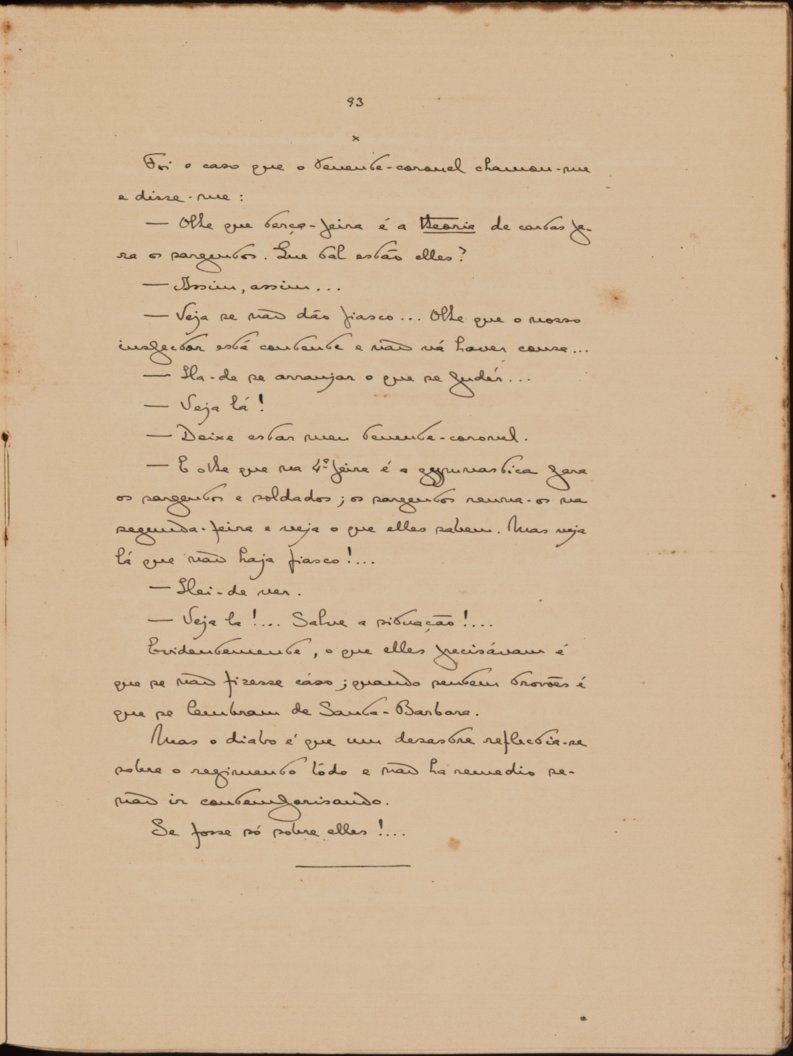 93
x
Foi o caso que o tenente-coronel chamou-me
e disse-me:
— Olhe que terça-feira é a theoria de cartas pa-
ra os sargentos. Que tal estão elles?
— Assim, assim...
— Veja se não dão fiasco... Olhe que o nosso
inspector está contente e não vá haver cousa...
— Ha-de se arranjar o que se pudér...
— Veja lá!
— Deixe estar meu tenente-coronel.
— E olhe que na 4ª feira é a gymnastica para
os sargentos e soldados; os sargentos reuna-os na
segunda-feira e veja o que elles sabem. Mas veja
lá que não haja fiasco!...
— Hei-de ver.
— Veja la!... Salve a situação!...
Evidentemente, o que elles precisávam é
que se não fizesse cáso; quando sentem trovões é
que se lembram de Santa-Barbara.
Mas o diabo é que um desastre reflectia-se
sobre o regimento tôdo e não ha remedio se-
não ir contemporisando.
Se fosse só sobre elles!...